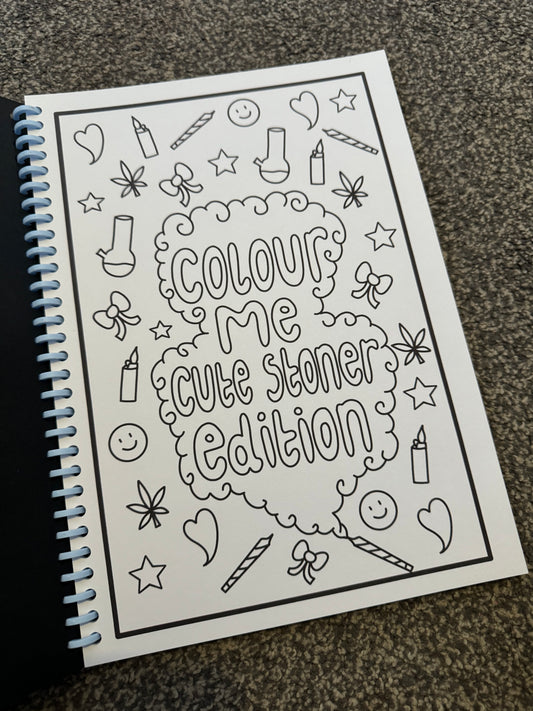 COLOUR
Me
Cute Stoner
edition